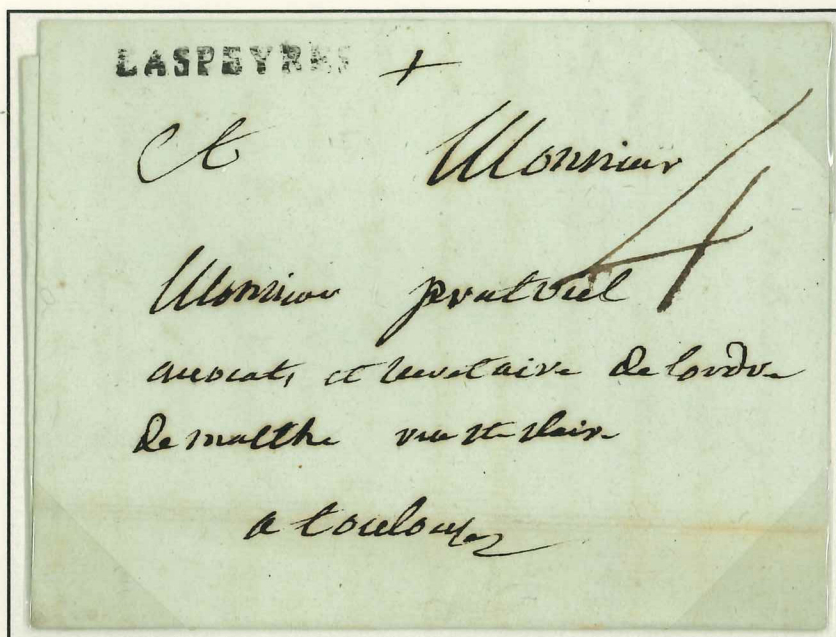 LASPEYRES +
A Monsieur
4
Monsieur pratviel
avocat, et secretaire de lordre
de malthe rue ste claire
a toulouse